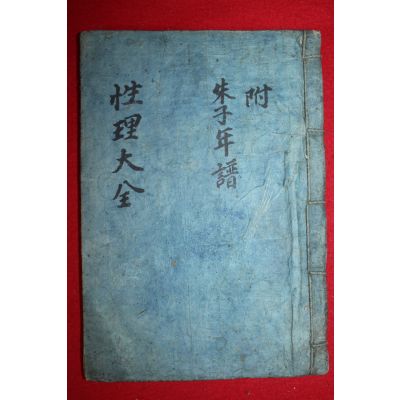 附
朱子年譜
性理大全